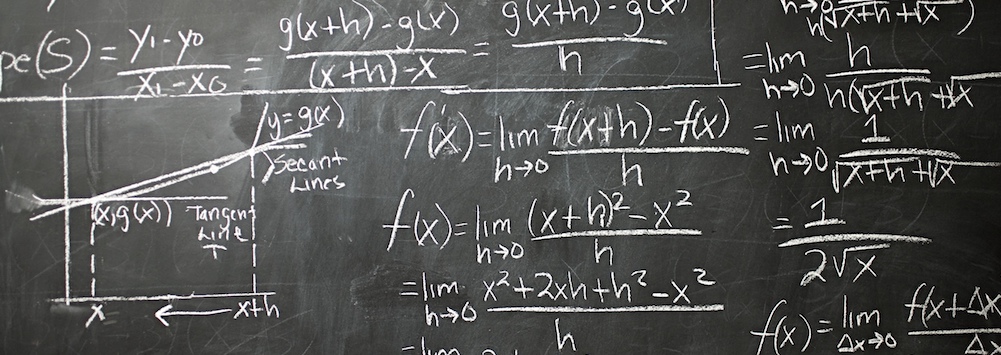 pe(S) = y₁-y₀ / x₁-x₀ = g(x+h)-g(x) / (x+h)-x = g(x+h)-g(x) / h
y=g(x)
Secant
Lines
(x,g(x))
Tangent
Line
T
x ← x+h
f'(x)= lim h→0 f(x+h)-f(x) / h
f(x)= lim h→0 (x+h)²-x² / h
=lim h→0 x²+2xh+h²-x² / h
=lim
h→0 h(√x+h+√x)
=lim h→0 h / h(√x+h+√x
=lim h→0 1 / √x+h+√x
= 1 / 2√x
f(x)= lim Δx→0 f(x+Δx / Δx